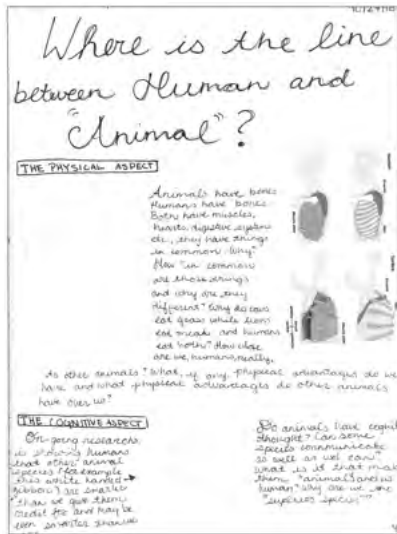 Where is the line
between Human and
"Animal"?
THE PHYSICAL ASPECT
Animals have bones
Humans have bones.
Both have muscles,
hearts, digestive systems
etc., they have things
in common. Why?
How "in common"
are those things
and why are they
different? Why do cows
eat grass while lions
eat meat and humans
eat both? How close
are we, humans, really,
to other animals? What, if any, physical advantages do we
have and what physical advantages do other animals
have over us?
THE COGNITIVE ASPECT
On-going research
is showing humans
that other animal
species (for example
this white handed
gibbon) are smarter
than we give them
credit for and may be
even smarter than we
Do animals have
thought? Can some
species communicate
as well as we can?
What is it that
them "animals" and us
human? Why are we the
"superior species"?